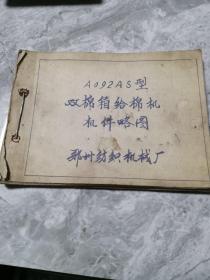 A092AS型
双棉箱给棉机
机件略图
郑州纺织机械厂